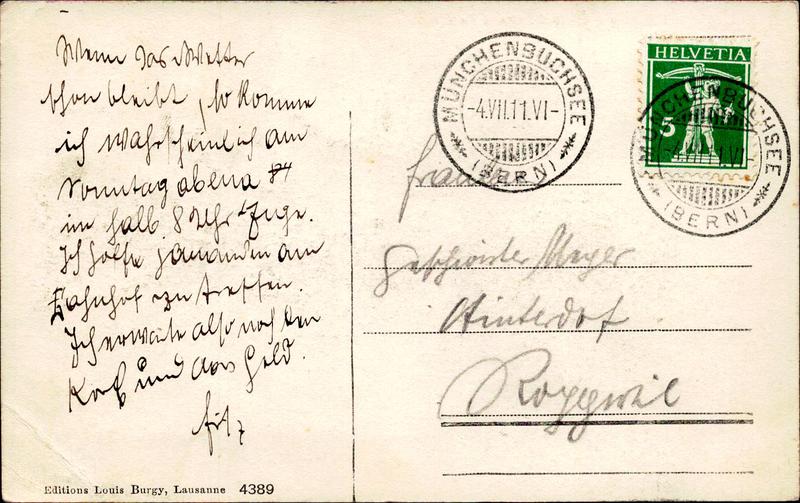 Wenn das Wetter
schön bleibt, so komme
ich wahrscheinlich am
Sonntag abend
im halb 8 Uhr Zuge.
Ich hoffe jemanden am
Bahnhof zu treffen.
Ich erwarte also noch den
Korb und das Geld.
Fritz
Editions Louis Burgy, Lausanne 4389
MÜNCHENBUCHSEE
-4.VII.11.VI-
(BERN)
HELVETIA
5
MÜNCHENBUCHSEE
-4.VII.11.VI-
(BERN)
Geschwister Meyer
Hinterdorf
Roggwil